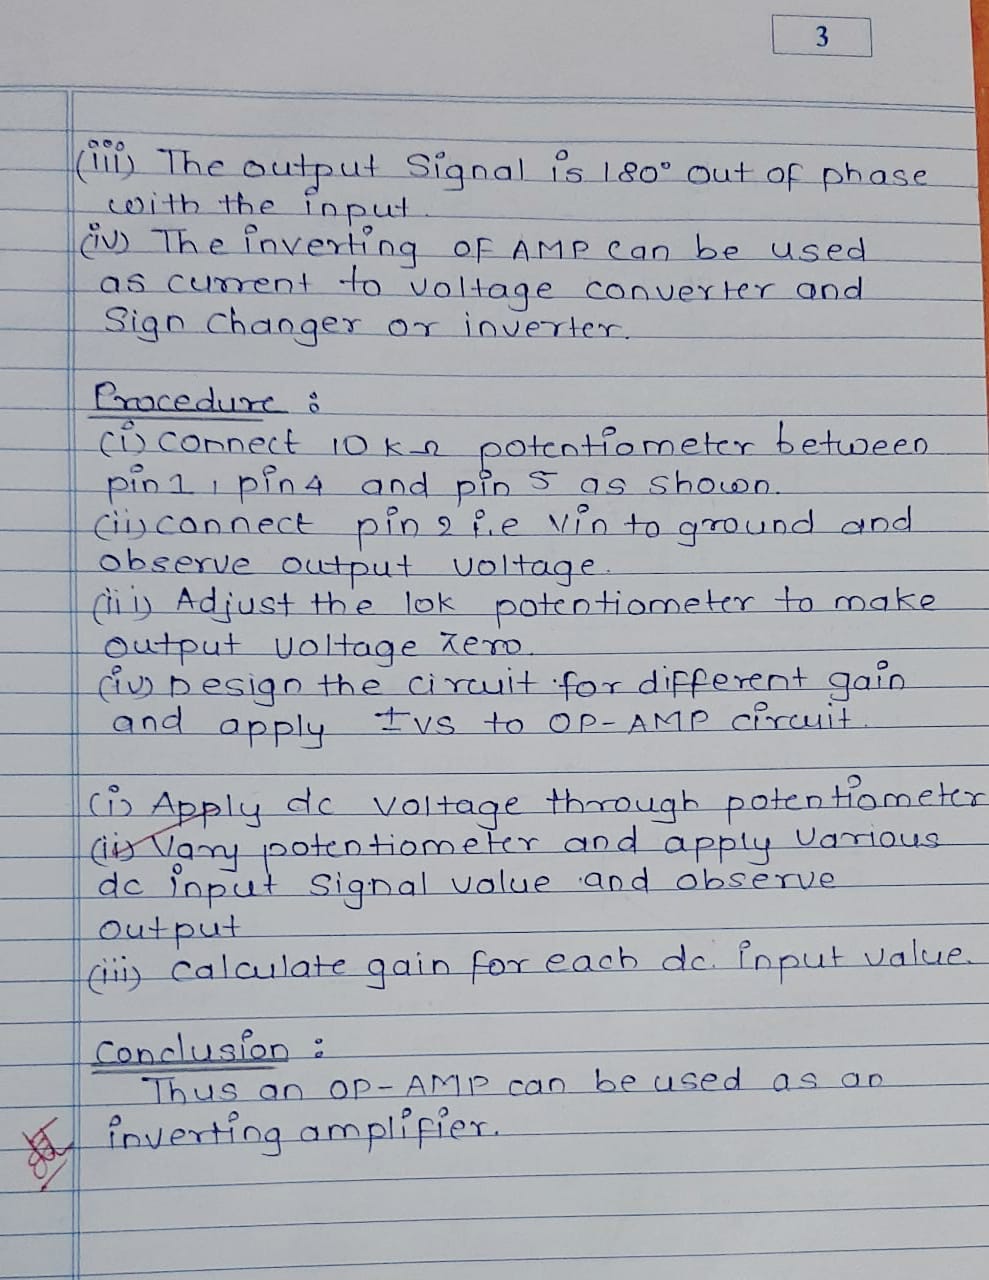 3
(iii) The output Signal is 180° out of phase
with the input.
(iv) The inverting OF AMP can be used
as current to voltage converter and
Sign changer or inverter.
Procedure :
(i) connect 10 kΩ potentiometer between
pin 1, pin 4 and pin 5 as shown.
(ii) connect pin 2 i.e Vin to ground and
observe output voltage.
(iii) Adjust the 10k potentiometer to make
output voltage zero.
(iv) Design the circuit for different gain
and apply ±VS to OP-AMP circuit.
(i) Apply dc voltage through potentiometer
(ii) Vary potentiometer and apply various
dc input signal value and observe
output
(iii) calculate gain for each dc. input value.
Conclusion :
Thus an OP-AMP can be used as an
inverting amplifier.